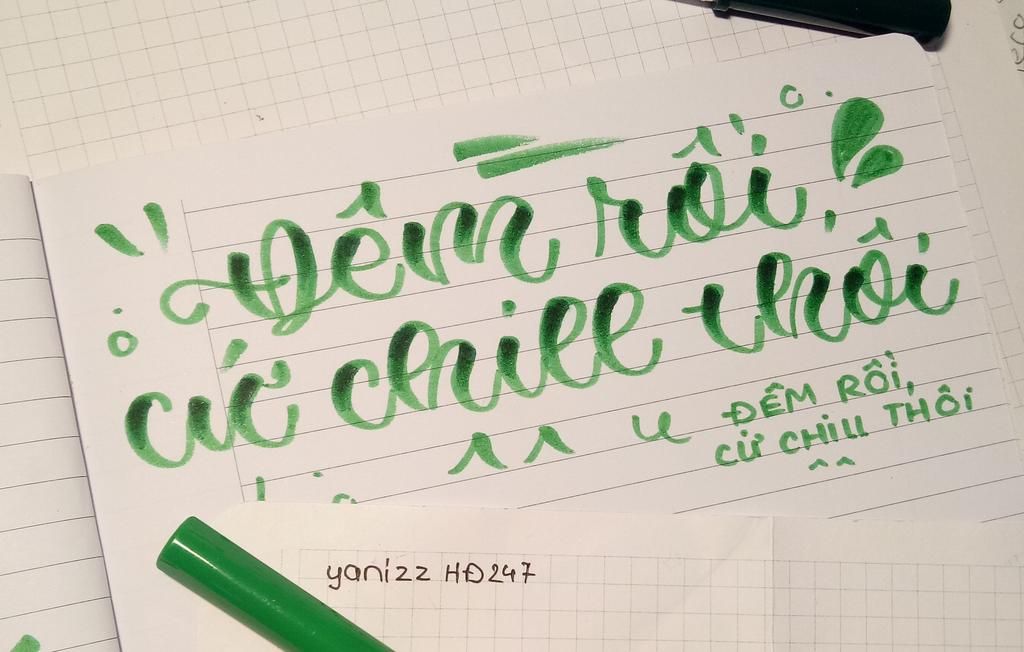 Đêm rồi,
cứ chill thôi
ĐÊM RỒI,
CỨ CHILL THÔI
yanizz HĐ247